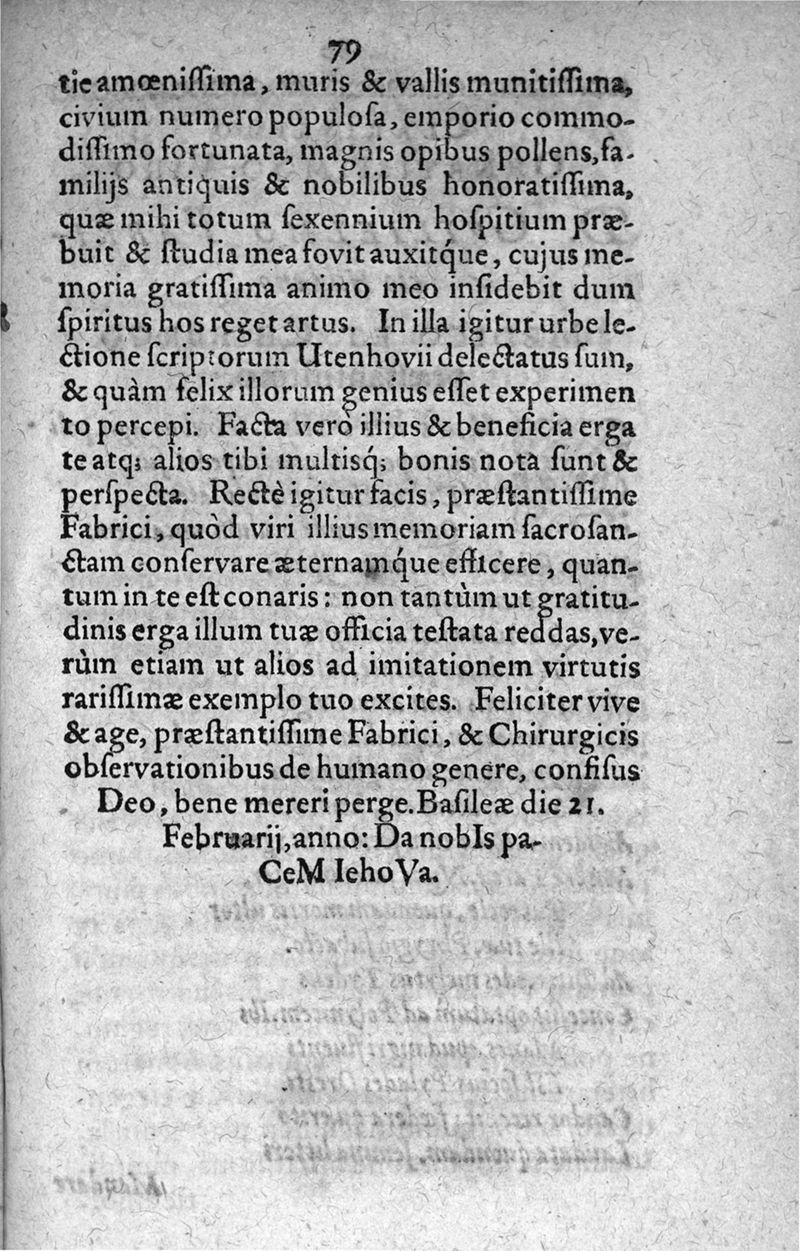 79
tie amœniſſima, muris & vallis munitiſſima,
civium numero populoſa, emporio commo-
diſſimo fortunata, magnis opibus pollens, fa-
milijs antiquis & nobilibus honoratiſſima,
quæ mihi totum ſexennium hoſpitium præ-
buit & ſtudia mea fovit auxitq́ue, cujus me-
moria gratiſſima animo meo inſidebit dum
ſpiritus hos reget artus. In illa igitur urbe le-
ctione ſcriptorum Utenhovii delectatus ſum,
& quàm felix illorum genius eſſet experimen
to percepi. Facta verò illius & beneficia erga
te atq; alios tibi multisq́; bonis nota ſunt &
perſpecta. Rectè igitur facis, præſtantiſſime
Fabrici, quòd viri illius memoriam ſacroſan-
ctam conſervare æternamq́ue efficere, quan-
tum in te eſt conaris: non tantùm ut gratitu-
dinis erga illum tuæ officia teſtata reddas, ve-
rùm etiam ut alios ad imitationem virtutis
rariſſimæ exemplo tuo excites. Feliciter vive
& age, præſtantiſſime Fabrici, & Chirurgicis
obſervationibus de humano genere, confiſus
Deo, bene mereri perge. Baſileæ die 21.
Februarij, anno: Da nobIs pa-
CeM IehoVa.